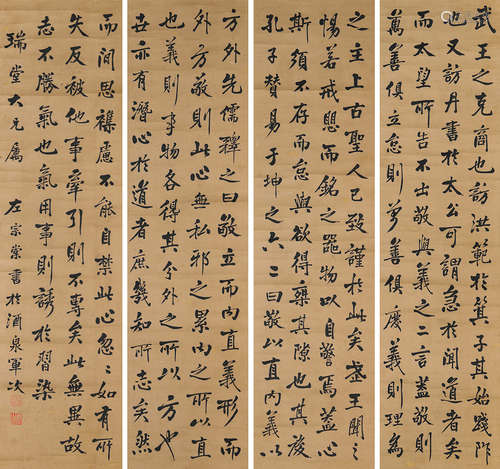 武王之克商也訪洪範於箕子其始踐阼
也又訪丹書於太公可謂急於聞道者矣
而太望所告不出敬與義之二言蓋敬則
萬善俱立怠則萬善俱廢義則理為
之主上古聖人已致謹於此矣武王聞之
惕若戒懼而銘之器物以自警焉蓋恐
斯須不存而怠與欲得乘其隙也其後
孔子贊易于坤之六二曰敬以直內義以
方外先儒釋之曰敬立而內直義形而
外方敬則此心無私邪之累內之所以直
也義則事物各得其分外之所以方也
世亦有潛心於道者庶幾知所志矣然
而間思襍慮不能自禁此心忽忽如有所
失反被他事牽引則不專矣此無異故
志不勝氣也氣用事則誘於習染
瑞堂大兄屬 左宗棠書於酒泉軍次